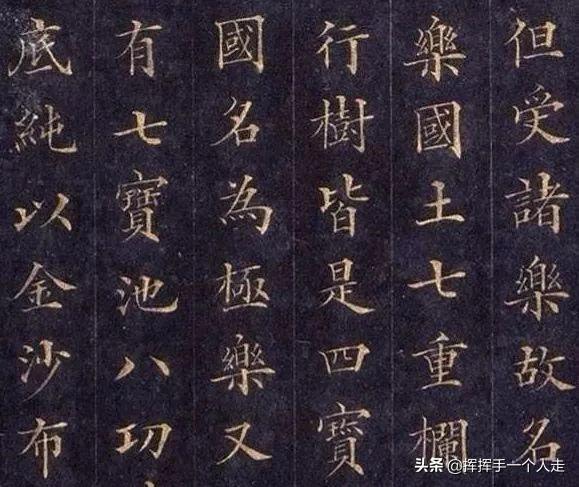 但受諸樂故名
樂國土七重欄
行樹皆是四寶
國名為極樂又
有七寶池八功
底純以金沙布
头条 @挥挥手一个人走